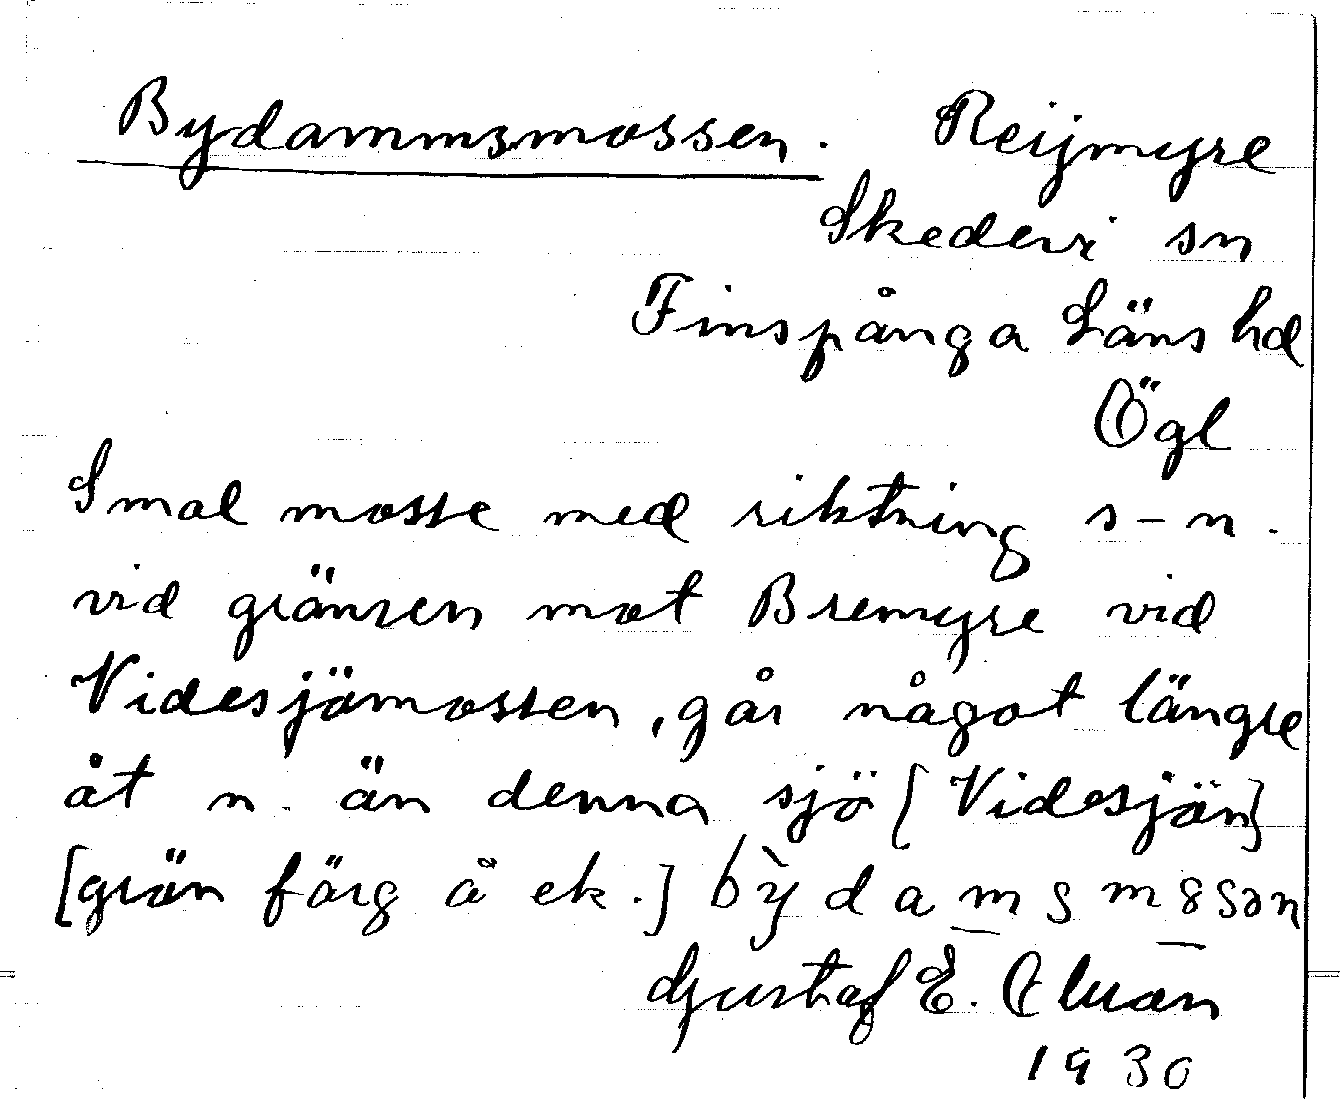 Bydammsmossen. Reijmyre
Skedevi sn
Finspånga Läns hd
Ögl
Smal mosse med riktning s-n.
vid gränsen mot Bremyre vid
Videsjömossen, går något längre
åt n. än denna sjö [Videsjön]
[grön färg å ek.]
Gustaf E.
1930